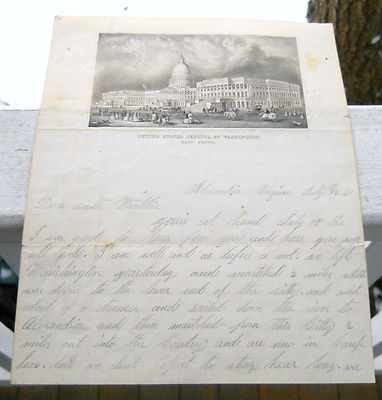 UNITED STATES CAPITOL AT WASHINGTON
EAST FRONT.
Alexandria Virginia July 12 61
Dear
yours at hand July 10 the
I was glad to hear from you and hear you are
all well. I am well and as tuffer a not. we left
Washington yesterday and marched 2 miles
was down to the lower end of the city. and went
abord of a steamer and sailed down the river to
Alexandria and then marched from this City 2
miles out into the Contry and are now in Camp
hear. but we dont expect to stay hear long. we